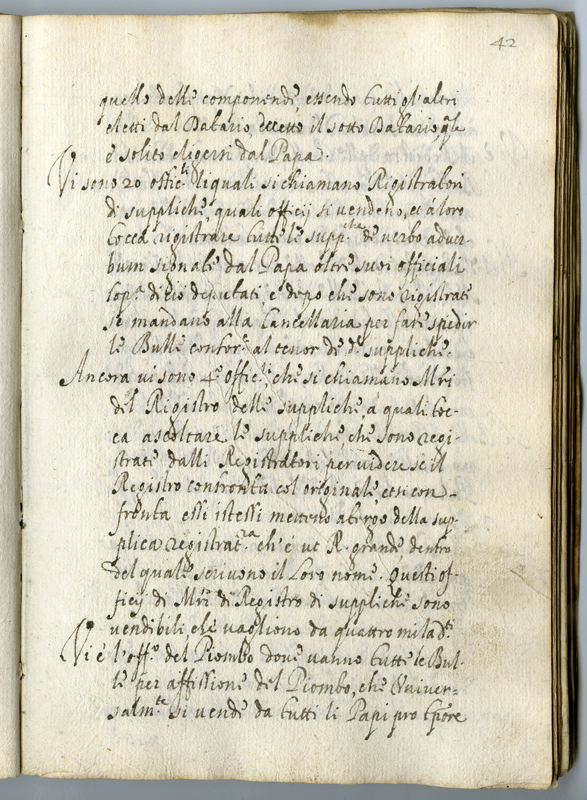 42
quello delle componende, essendo tutti gl'altri
eletti dal Datario, eccetto il sotto Datario q.le
è solito eligersi dal Papa.
Vi sono 20 offic.li li quali si chiamano Rigistratori
di suppliche, quali officij si vendono, et a loro
tocca rigistrare tutte le supp.che de verbo ad ver-
bum signate dal Papa oltre suoi officiali
sop.a di ciò deputati, e dopo che sono rigistrate
si mandano alla Cancellaria per fare spedir
le Bulle confor.e al tenor de d.e suppliche.
Ancora vi sono 4.o offic.li, che si chiamano M.ri
del Rigistro delle suppliche, a quali toc-
ca ascoltare le suppliche, che sono regi-
strate dalli Registratori per videre se il
Registro confronta col originale, et si con-
fronta essi istessi metteno a tergo della sup-
plica registrat.ra ch'è ut R grande, dentro
del quale scrivono il Loro nome. Questi of-
ficij di M.ri di Registro di suppliche sono
vendibili, che vagliono da quattro mila d.ti
Vi è l'off.o del Piombo dove vanno tutte le Bul-
le per affissione del Piombo, che Univer-
salm.te si vende da tutti li Papi pro t[em]p[o]re